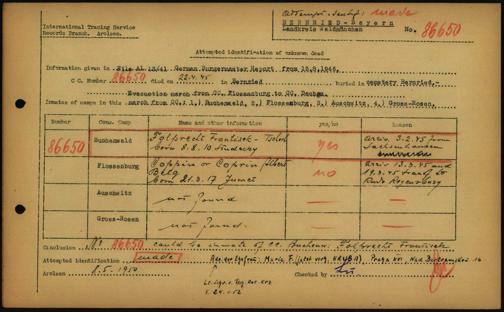 Attempt. identif.: made
International Tracing Service
Records Branch. Arolsen.
BERNRIED-Bayern
Landkreis Waldmünchen
No. 86650
Attempted identification of unknown dead
Information given in File AL 13(61) German Burgermaster Report from 18.8.1946.
C.C. Number 86650 died on 22.4.45 in Bernried Buried in cemetery Bernried,-
Evacuation march from CC. Flossenburg to CC. Dachau.
Inmates of camps in this march from CC. 1.) Buchenwald, 2.) Flossenburg, 3.) Auschwitz, 4.) Gross-Rosen.
Number Conc. Camp Name and other information yes/no reason
86650 Buchenwald Palbrecht Frantisek - Tschech born 8.8.10 yes Arriv. 3.2.45 from Sachsenhausen
Flossenburg Coppin or Coprin Albert Belg. born 21.3.17 Jumet no Arriv. 13.3.45 and 19.3.45 transf. to Kdo
Auschwitz not found — —
Gross-Rosen not found. — —
Conclusion Nr 86650 could be inmate of CC. Buchenw. Palbrecht Frantisek
Attempted identification made
Arolsen 8.5.1950 Checked by